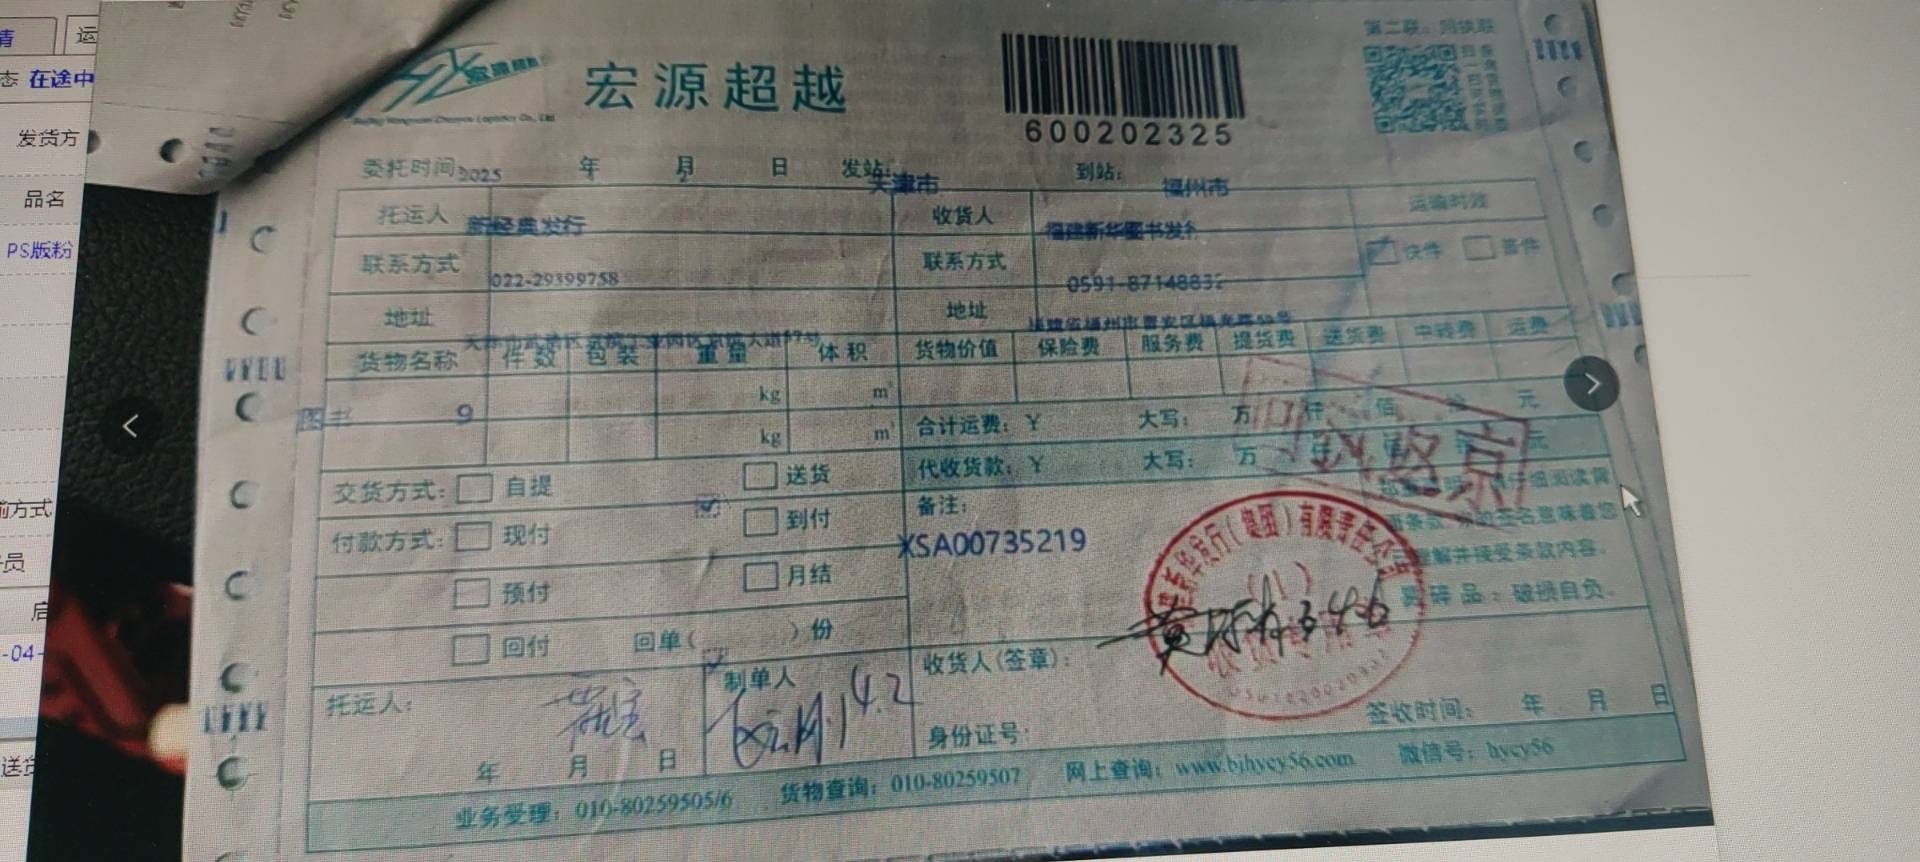 情
运
态 在途中
发货方
品名
PS版粉
前方式
员
启
-04-
送货
第二联：回执联
宏源超越
600202325
委托时间 2025 年 月 日 发站： 天津市 到站： 福州市
2
托运人 新经典发行 收货人 福建新华图书发行 运输时效
联系方式 022-29399758 联系方式 0591-87148832 快件 普件
地址 地址
货物名称 件数 包装 重量 体积 货物价值 保险费 服务费 提货费 送货费 中转费 运费
kg m³
图书 9
kg m³
合计运费：￥ 大写： 万 仟 佰 拾 元
代收货款：￥ 大写： 万 仟 佰 拾 元
交货方式： 自提 送货
付款方式： 现付 到付
预付 月结
回付 回单（ ）份
备注：
XSA00735219
仔细阅读背
面条款 您的签名意味着您
理解并接受条款内容。
易碎品：破损自负。
发行（集团）有限责任公司
托运人：
年 月 日
制单人
4.2
收货人（签章）：
身份证号：
签收时间： 年 月 日
业务受理：010-80259505/6 货物查询：010-80259507 网上查询：www.bjhycy56.com 微信号：hycy56